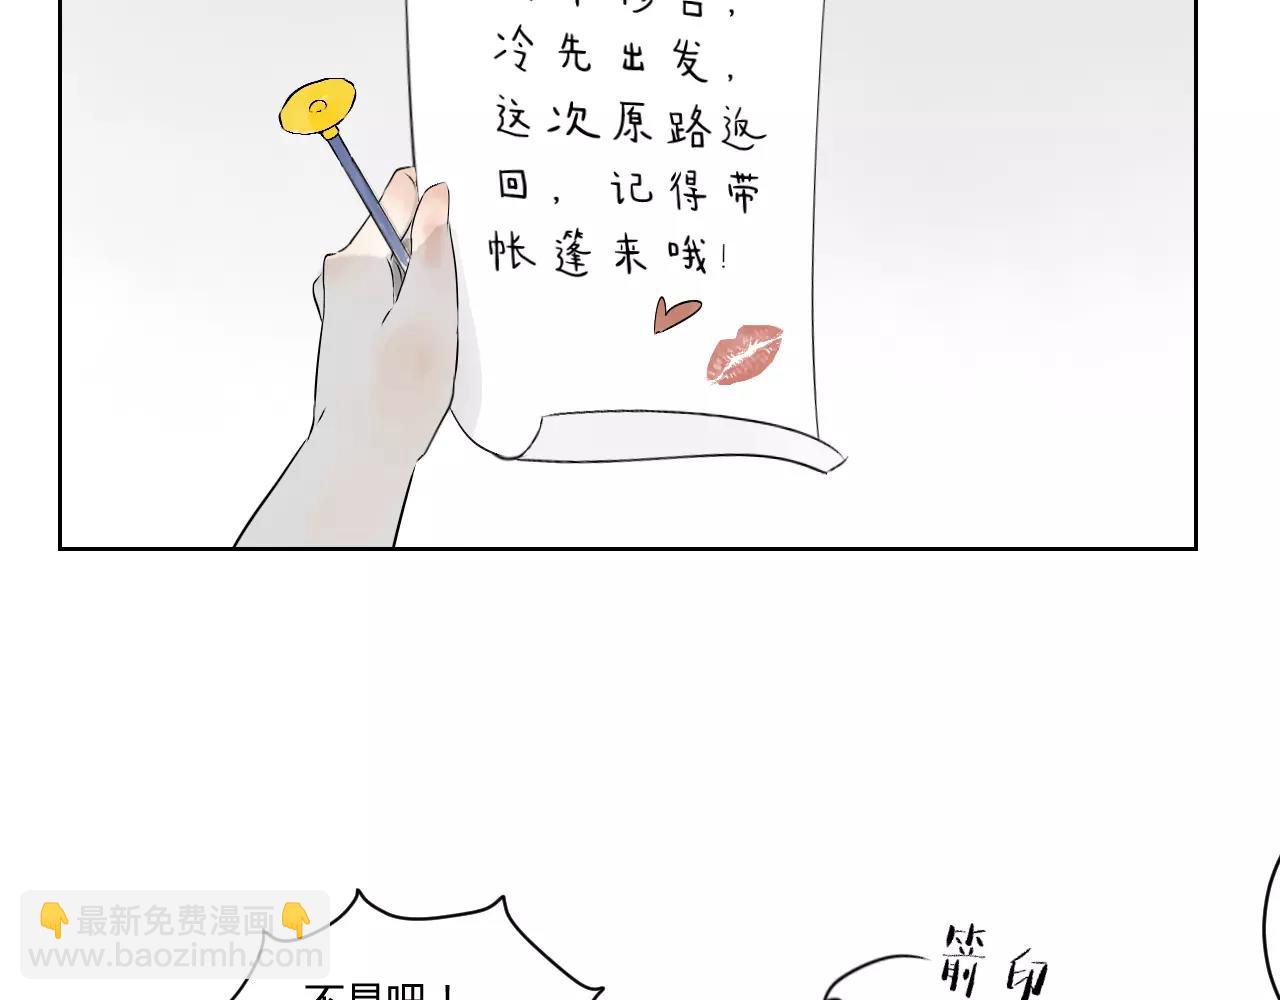 冷先出发，
这次原路返
回，记得带
帐篷来哦！
箭印
最新免费漫画
www.baozimh.com
不是吧！